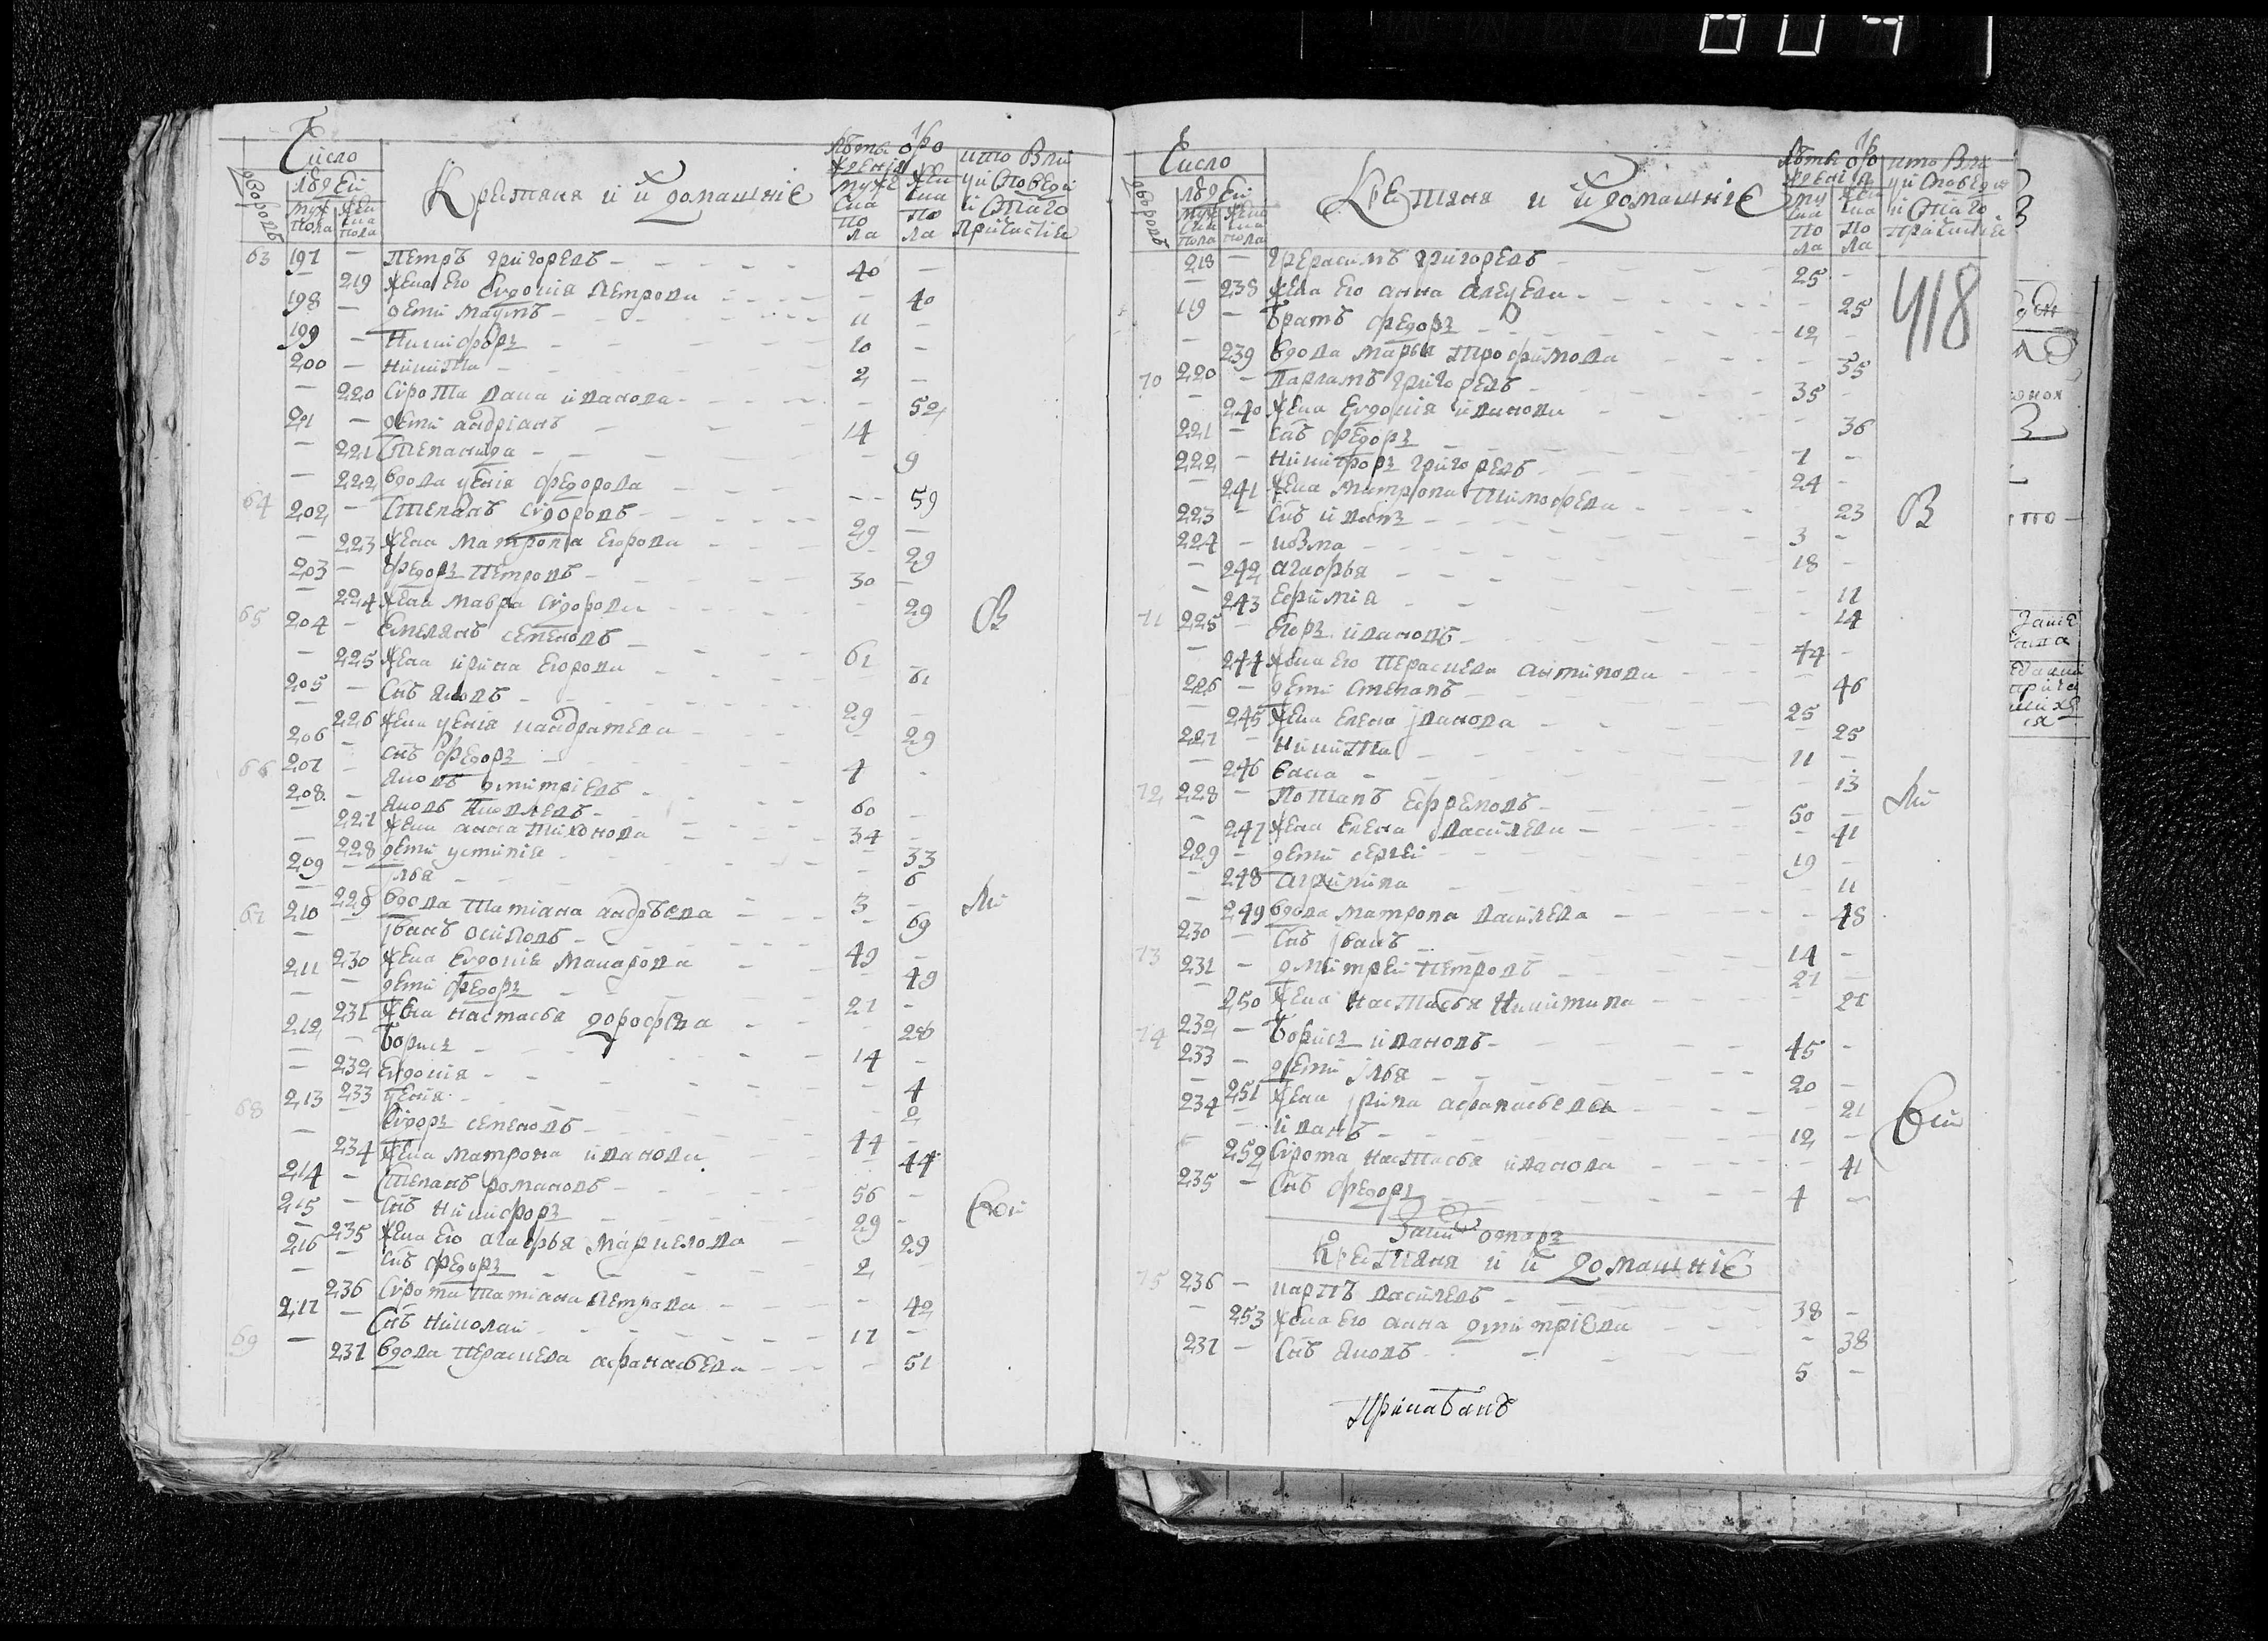 Число
дворовъ
людей
муж пола
жен ска пола
Крестяня и ихъ домашние
Лѣта от ро ждения
муже ска по ла
жен ска по ла
кто былъ у исповеди и святаго причастия
63 197 — Петръ Григоревъ — 40 —
— 219 жена его Евдокия Петрова — — 40
198 — дети Наумъ — 11 —
199 — Никифоръ — 10 —
200 — Никита — 2 —
— 220 сирота Вана Иванова — — 52
201 — дети Андрианъ — 14
— 221 Степанида — — 9
— 222 вдова Ксения Федорова — — 59
64 202 — Степанъ Сидоровъ — 29 —
— 223 жена Матрона Егорова — — 29
203 — Федоръ Петровъ — 30 —
— 224 жена Мавра Сидорова — — 29
65 204 — Емелянъ Семеновъ — 61
— 225 жена Ирина Егорова — — 61
205 — снъ Яковъ — 29 —
— 226 жена Ксения Кандратева — — 29
206 — снъ Федоръ — 4 —
66 207 — Яковъ Дмитриевъ — 60 —
208 — Яковъ Яковлевъ — 34 —
— 227 жена Анна Тихонова — — 33
— 228 дети Устиния — — 6
209 — Илья — 3 —
— 229 вдова Татиана Андрѣева — — 69
67 210 — Иванъ Осиповъ — 49 —
— 230 жена Евдокия Макарова — — 49
211 — дети Федоръ — 21 —
— 231 жена Настасья Дорофѣева — — 26
212 — Борисъ — 14 —
— 232 Евдокия — — 4
— 233 Ксения — — 2
68 213 — Сидоръ Семеновъ — 44 —
— 234 жена Матрона Иванова — — 44
214 — Степанъ Романовъ — 56 —
215 — снъ Никифоръ — 29 —
— 235 жена его Агафья Маркелова — — 29
216 — снъ Федоръ — 2
— 236 сирота Татиана Петрова — — 42
217 — снъ Николай — 17 —
69 — 237 вдова Перасцева Афанасьева — — 51
Число
дворовъ
людей
муж ска пола
жен ска пола
Крестяня и ихъ домашние
Лѣта от ро ждения
му ска по ла
жен ска по ла
кто былъ у исповеди и святаго причастия
418
218 — Герасимъ Григоревъ — 25 —
— 238 жена его Анна Алексеева — — 25
219 — братъ Федоръ — 12 —
— 239 вдова Марья Трофимова — — 35
70 220 — Варламъ Григоревъ — 35 —
— 240 жена Евдокия Иванова — — 36
221 — снъ Федоръ — 7 —
222 — Никифоръ Григоревъ — 24 —
— 241 жена Матрона Тимофеева — — 23
223 — снъ Иванъ — 3 —
224 — Козма — 18 —
— 242 Агафья — — 11
— 243 Ефимия — — 14
71 225 — Егоръ Ивановъ — 44 —
— 244 жена его Перасцева Антипова — — 46
226 — дети Степанъ — 25
— 245 жена Елена Иванова — — 25
227 — Никита — 11 —
— 246 Васа — — 13
72 228 — Потапъ Ефремовъ — 50 —
— 247 жена Елена Василева — — 41
229 — дети Сергеи — 19 —
— 248 Агрипина — — 11
— 249 вдова Матрона Василева — — 48
230 — снъ Иванъ — 14 —
73 231 — Дмитреи Петровъ — 21 —
— 250 жена Настасья Никитина — — 21
74 232 — Борисъ Ивановъ — 45 —
233 — дети Илья — 20 —
— 251 жена Ирина Афанасьева — — 21
234 — Иванъ — 12 —
— 252 сирота Настасья Иванова — — 41
235 — снъ Федоръ — 4 —
Крестяня и ихъ домашние
75 236 — Карпъ Василевъ — 38 —
— 253 жена его Анна Дмитриева — — 38
237 — снъ Яковъ — 5 —